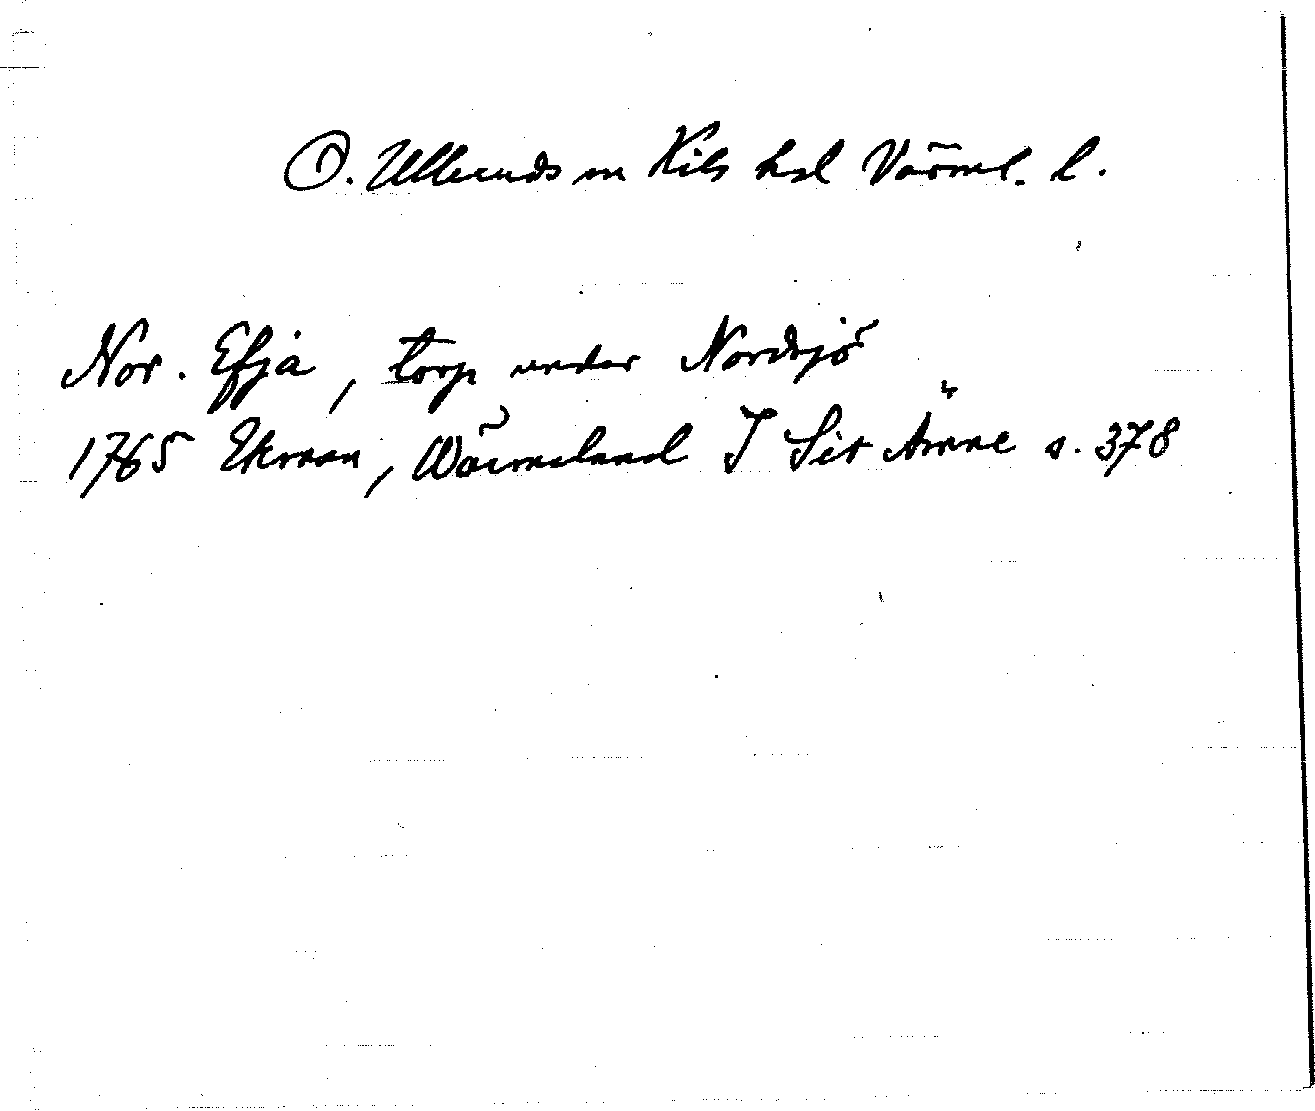 Ö. Ulleruds sn Kils hd Värml. l.
Nor. Efja, torp under Nordsjö
1765 Ekman, Wärmeland I Sit Ämne s. 378